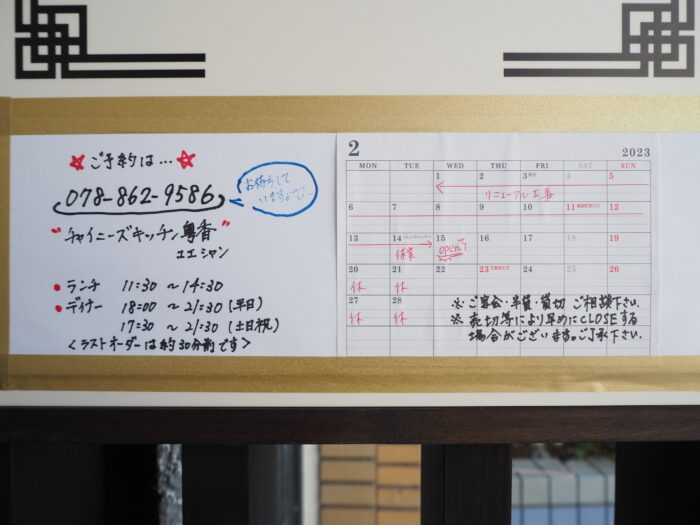 ご予約は…
078-862-9586
お待ちして
います
"チャイニーズキッチン粤香"
ユエシャン
・ランチ 11:30 〜 14:30
・ディナー 18:00 〜 21:30 (平日)
17:30 〜 21:30 (土日祝)
<ラストオーダーは約30分前です>
2 2023
MON TUE WED THU FRI SAT SUN
1 2 3 4 5
リニューアル工事
6 7 8 9 10 11 12
13 14 15 16 17 18 19
休業 openです
20 21 22 23 24 25 26
休 休
27 28
休 休
※ ご宴会・半貸・貸切 ご相談下さい。
※ 売切等により早めにCLOSEする
場合がございます。ご了承下さい。